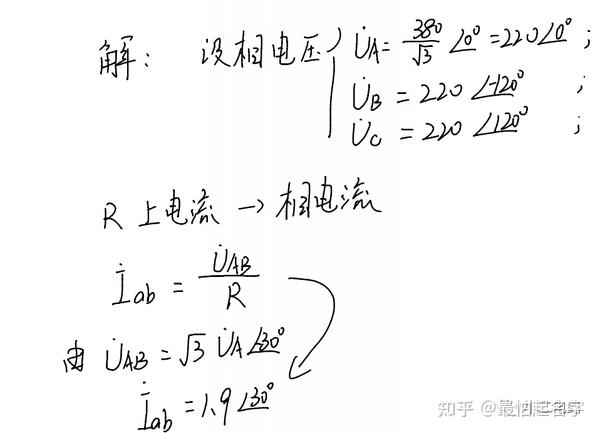 解： 设相电压 U̇A = 380/√3 ∠0° = 220∠0° ;
U̇B = 220 ∠-120° ;
U̇C = 220 ∠120° ;
R 上电流 → 相电流
İab = U̇AB/R
由 U̇AB = √3 U̇A∠30°
İab = 1.9∠30°
知乎 @最怕起名字